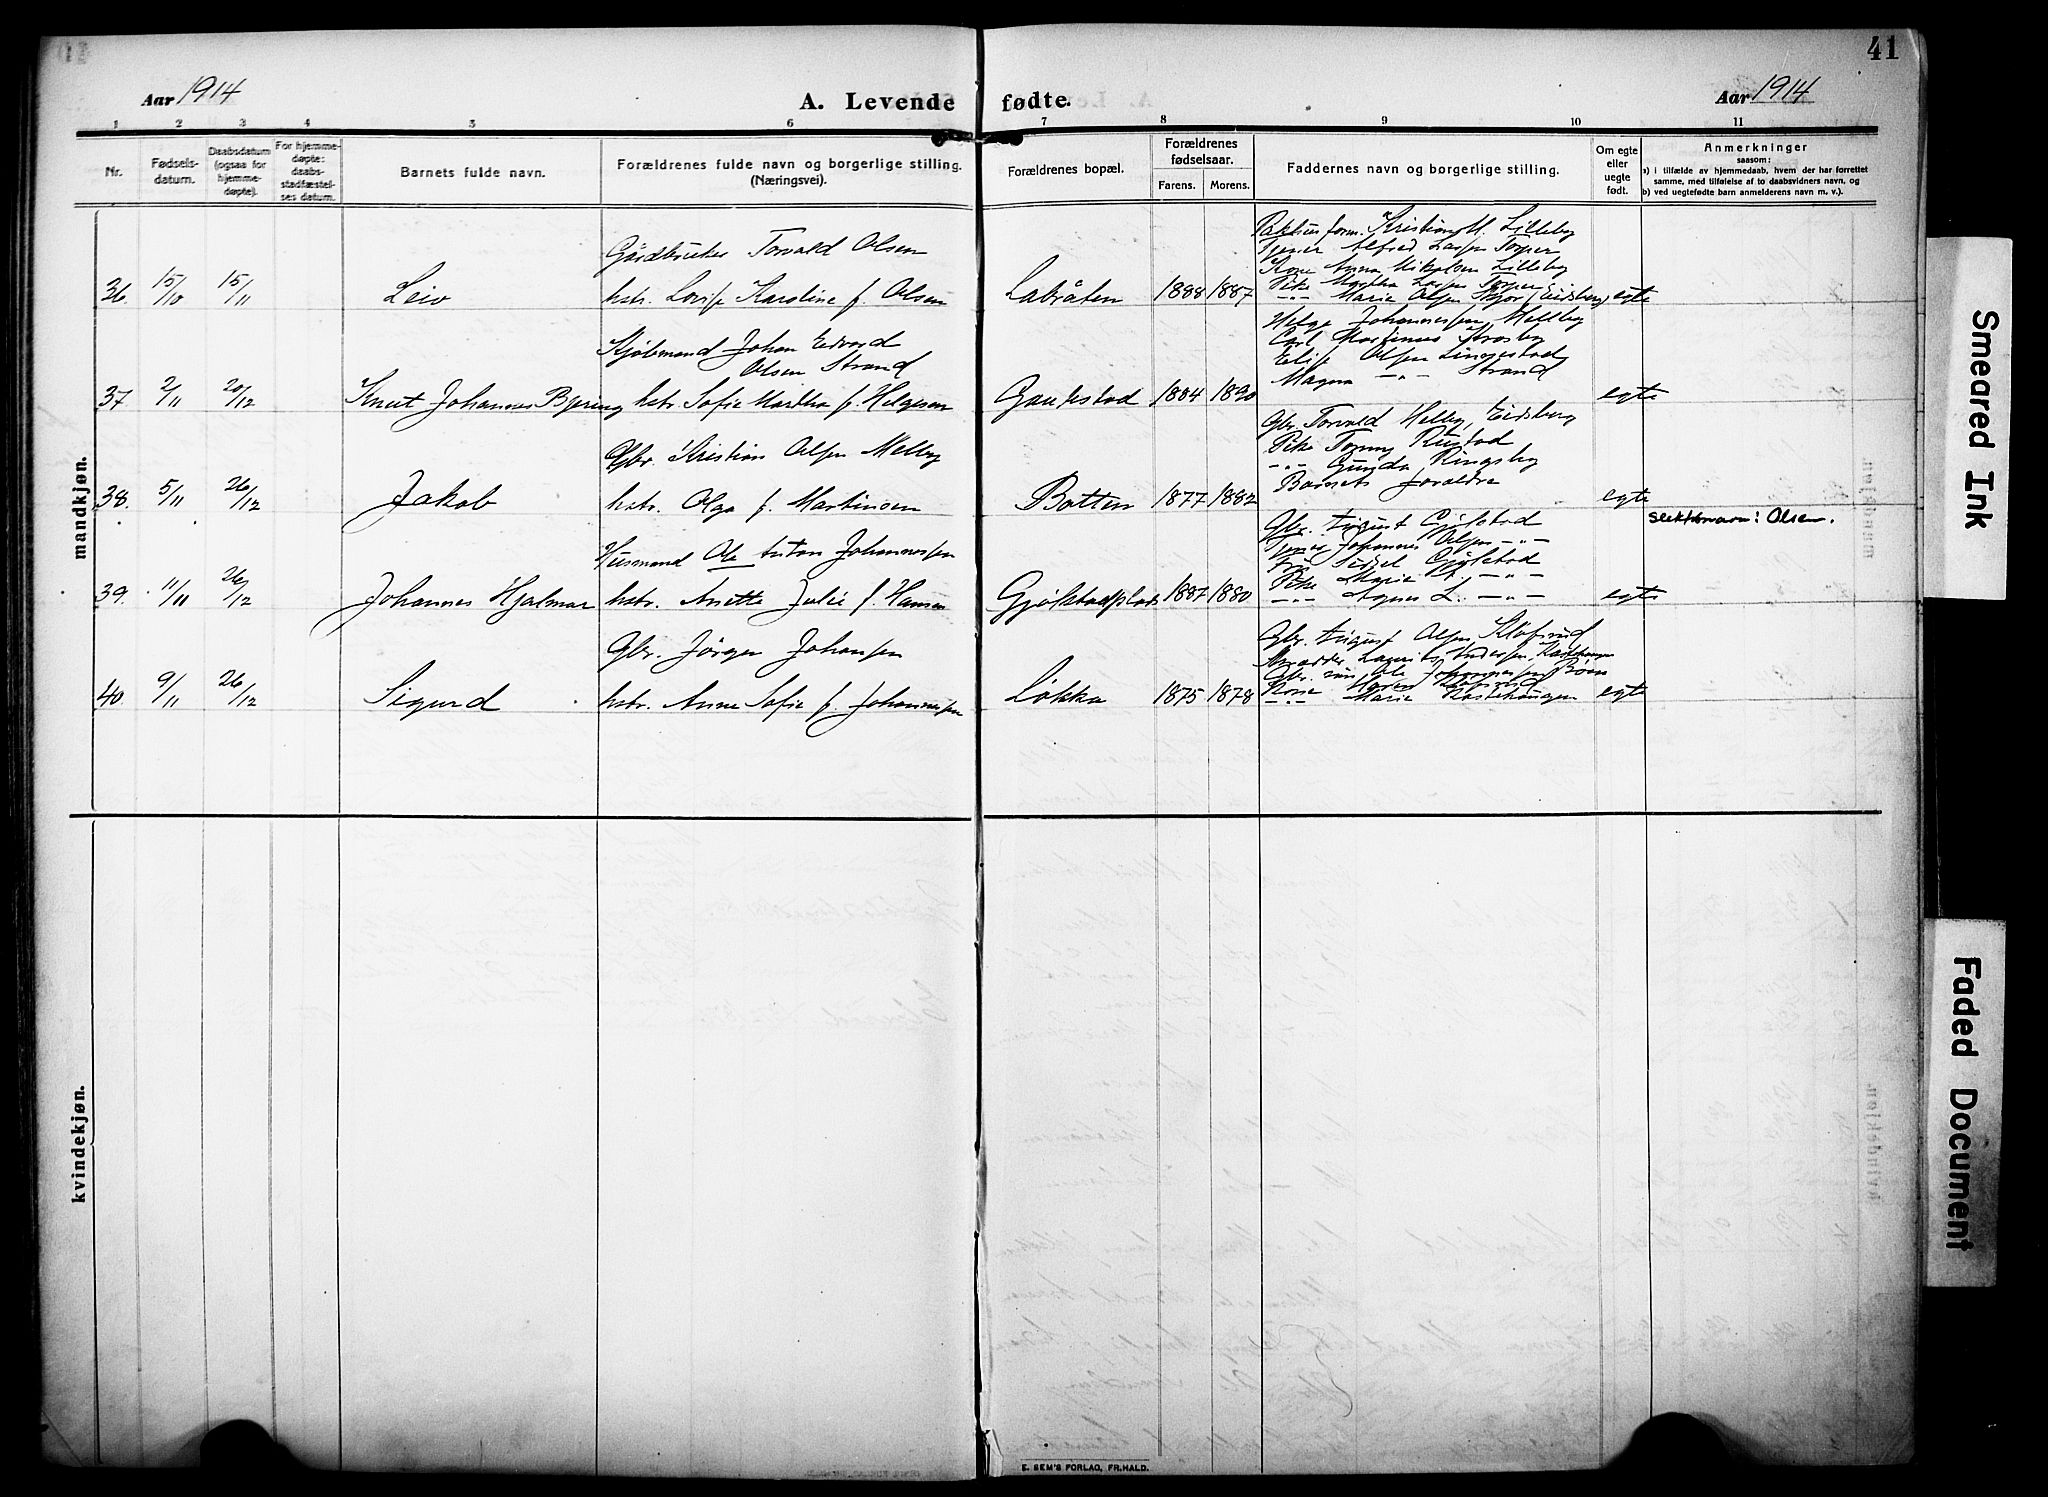 41
Aar 1914
A. Levende fødte.
Aar 1914
1 2 3 4 5 6 7 8 9 10 11
Nr.
Fødsels-
datum.
Daabsdatum
(ogsaa for
hjemme-
døpte).
For hjemme-
døpte:
daabs-
stadfæstel-
ses datum.
Barnets fulde navn.
Forældrenes fulde navn og borgerlige stilling.
(Næringsvei).
Forældrenes bopæl.
Forældrenes
fødselsaar.
Farens. Morens.
Faddernes navn og borgerlige stilling.
Om egte
eller
uegte
født.
Anmerkninger
saasom:
a) i tilfælde av hjemmedaab, hvem der har forrettet
samme, med tilføielse af to daabsvidners navn, og
b) ved uegtefødte barn anmelderens navn m. v.).
mandkjøn.
Gårdbruker Torvald Olsen
36. 15/10 15/11 Leiv hstr. Lovise Karoline f. Olsen Labråten 1888 1887 egte
Kristian M. Lilleby
Tjener Alfred Larsen
Kone Anna Mikalsen Lilleby
Pike Martha Larsen
-"- Marie Olsen Skjør (Eidsberg)
Kjøbmand Johan Edvard
Olsen Strand
37. 2/11 20/12 Knut Johannes Bjering hstr. Sofie Martha f. Helgesen Gaukstad 1884 1890 egte
Helge Johannessen Melleby
Carl Martinius
Elise Olsen
Magna -"- Strand
Gbr. Kristian Olsen Melby
38. 5/11 26/12 Jakob hstr. Olga f. Martinsen Botten 1877 1882 egte
Gbr. Torvald Melby, Eidsberg
Pike Tomny Rustad
-"- Gunda Ringsby
Barnets foreldre
Husmand Ole Anton Johannessen
39. 11/11 26/12 Johannes Hjalmar hstr. Anette Julie f. Hansen Gjølstadplads 1887 1880 egte
Gbr. August Gjølstad
Tjener Johannes Olsen -"-
Fru Sidsel Gjølstad
Pike Marie A. -"-
-"- Agnes L. -"-
slektsnavn: Olsen.
Gbr. Jørgen Johansen
40. 9/11 26/12 Sigurd hstr. Anne Sofie f. Johannessen Løkka 1875 1878 egte
Gbr. August Olsen Kløfsrud
Lauritz Andersen,
Gbr. søn Ole Johannessen Bøen
Kone Maren Kløfsrud
-"- Marie
kvindekjøn.
E. SEM'S FORLAG, FR.HALD.
Smeared Ink
Faded Document